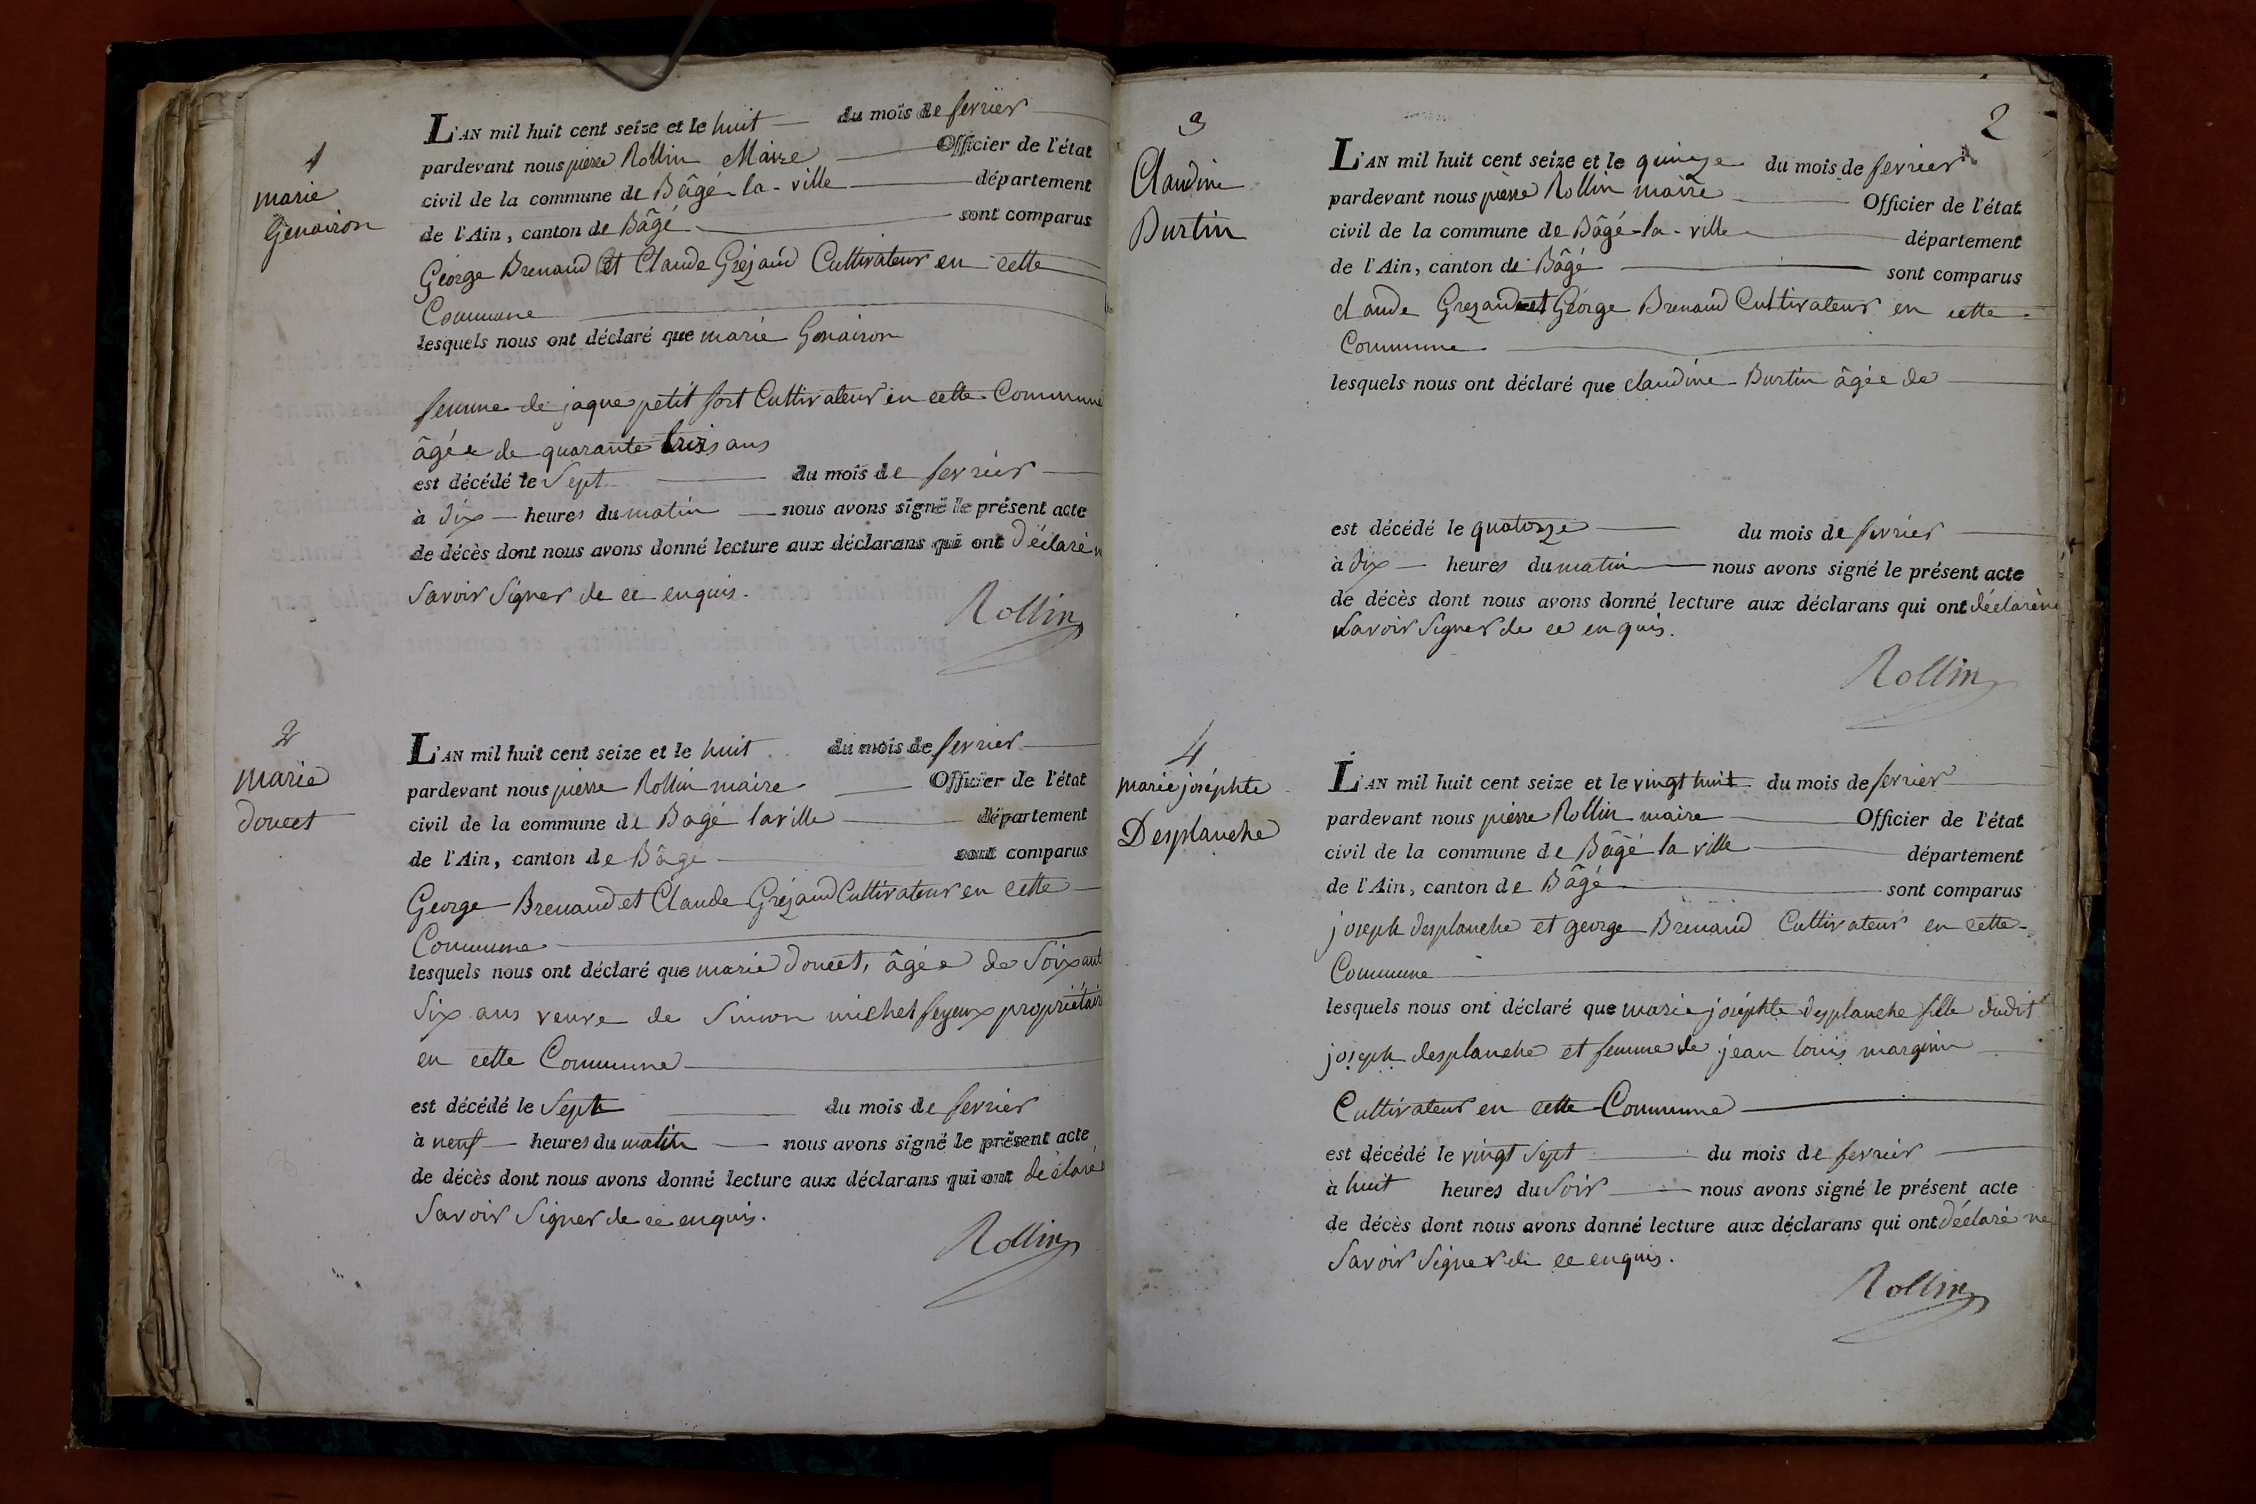 1
marie
Genairon
L'AN mil huit cent seize et le huit du mois de fevrier
pardevant nous pierre Rollin Maire Officier de l'état
civil de la commune de Bâgé-la-ville département
de l'Ain, canton de Bâgé sont comparus
George Brenaud et Claude Grézaud Cultivateur en cette
Commune
lesquels nous ont déclaré que marie Genairon
femme de jaque petit fort Cultivateur en cette Commune
âgée de quarante trois ans
est décédé le Sept du mois de fevrier
à dix heures du matin nous avons signé le présent acte
de décès dont nous avons donné lecture aux déclarans qui ont Déclaré
Savoir Signer de ce enquis.
Rollin
2
Marie
doucet
L'AN mil huit cent seize et le huit du mois de fevrier
pardevant nous pierre Rollin maire Officier de l'état
civil de la commune de Bagé laville département
de l'Ain, canton de Bâgé sont comparus
George Brenaud et Claude Grézaud Cultivateur en cette
Commune
lesquels nous ont déclaré que marie doucet, âgée de Soixante
Six ans veuve de Simon michel feyeux propriétaire
en cette Commune
est décédé le Sept du mois de fevrier
à neuf heures du matin nous avons signé le présent acte
de décès dont nous avons donné lecture aux déclarans qui ont déclaré
Savoir Signer de ce enquis.
Rollin
2
3
Claudine
Burtin
L'AN mil huit cent seize et le quinze du mois de fevrier
pardevant nous pierre Rollin maire Officier de l'état
civil de la commune de Bâgé-la-ville département
de l'Ain, canton de Bâgé sont comparus
claude Grezaud et George Brenaud Cultivateur en cette
Commune
lesquels nous ont déclaré que claudine Burtin âgée de
est décédé le quatorze du mois de fevrier
à dix heures du matin nous avons signé le présent acte
de décès dont nous avons donné lecture aux déclarans qui ont déclaré ne
Savoir Signer de ce enquis.
Rollin
4
marie joséphte
Desplanche
L'AN mil huit cent seize et le vingt huit du mois de fevrier
pardevant nous pierre Rollin maire Officier de l'état
civil de la commune de Bâgé la ville département
de l'Ain, canton de Bâgé sont comparus
joseph desplanche et george Brenaud Cultivateur en cette
Commune
lesquels nous ont déclaré que marie joséphte desplanche fille dudit
joseph desplanche et femme de jean louis marginin
Cultivateur en cette Commune
est décédé le vingt Sept du mois de fevrier
à huit heures du Soir nous avons signé le présent acte
de décès dont nous avons donné lecture aux déclarans qui ont déclaré ne
Savoir Signer de ce enquis.
Rollin